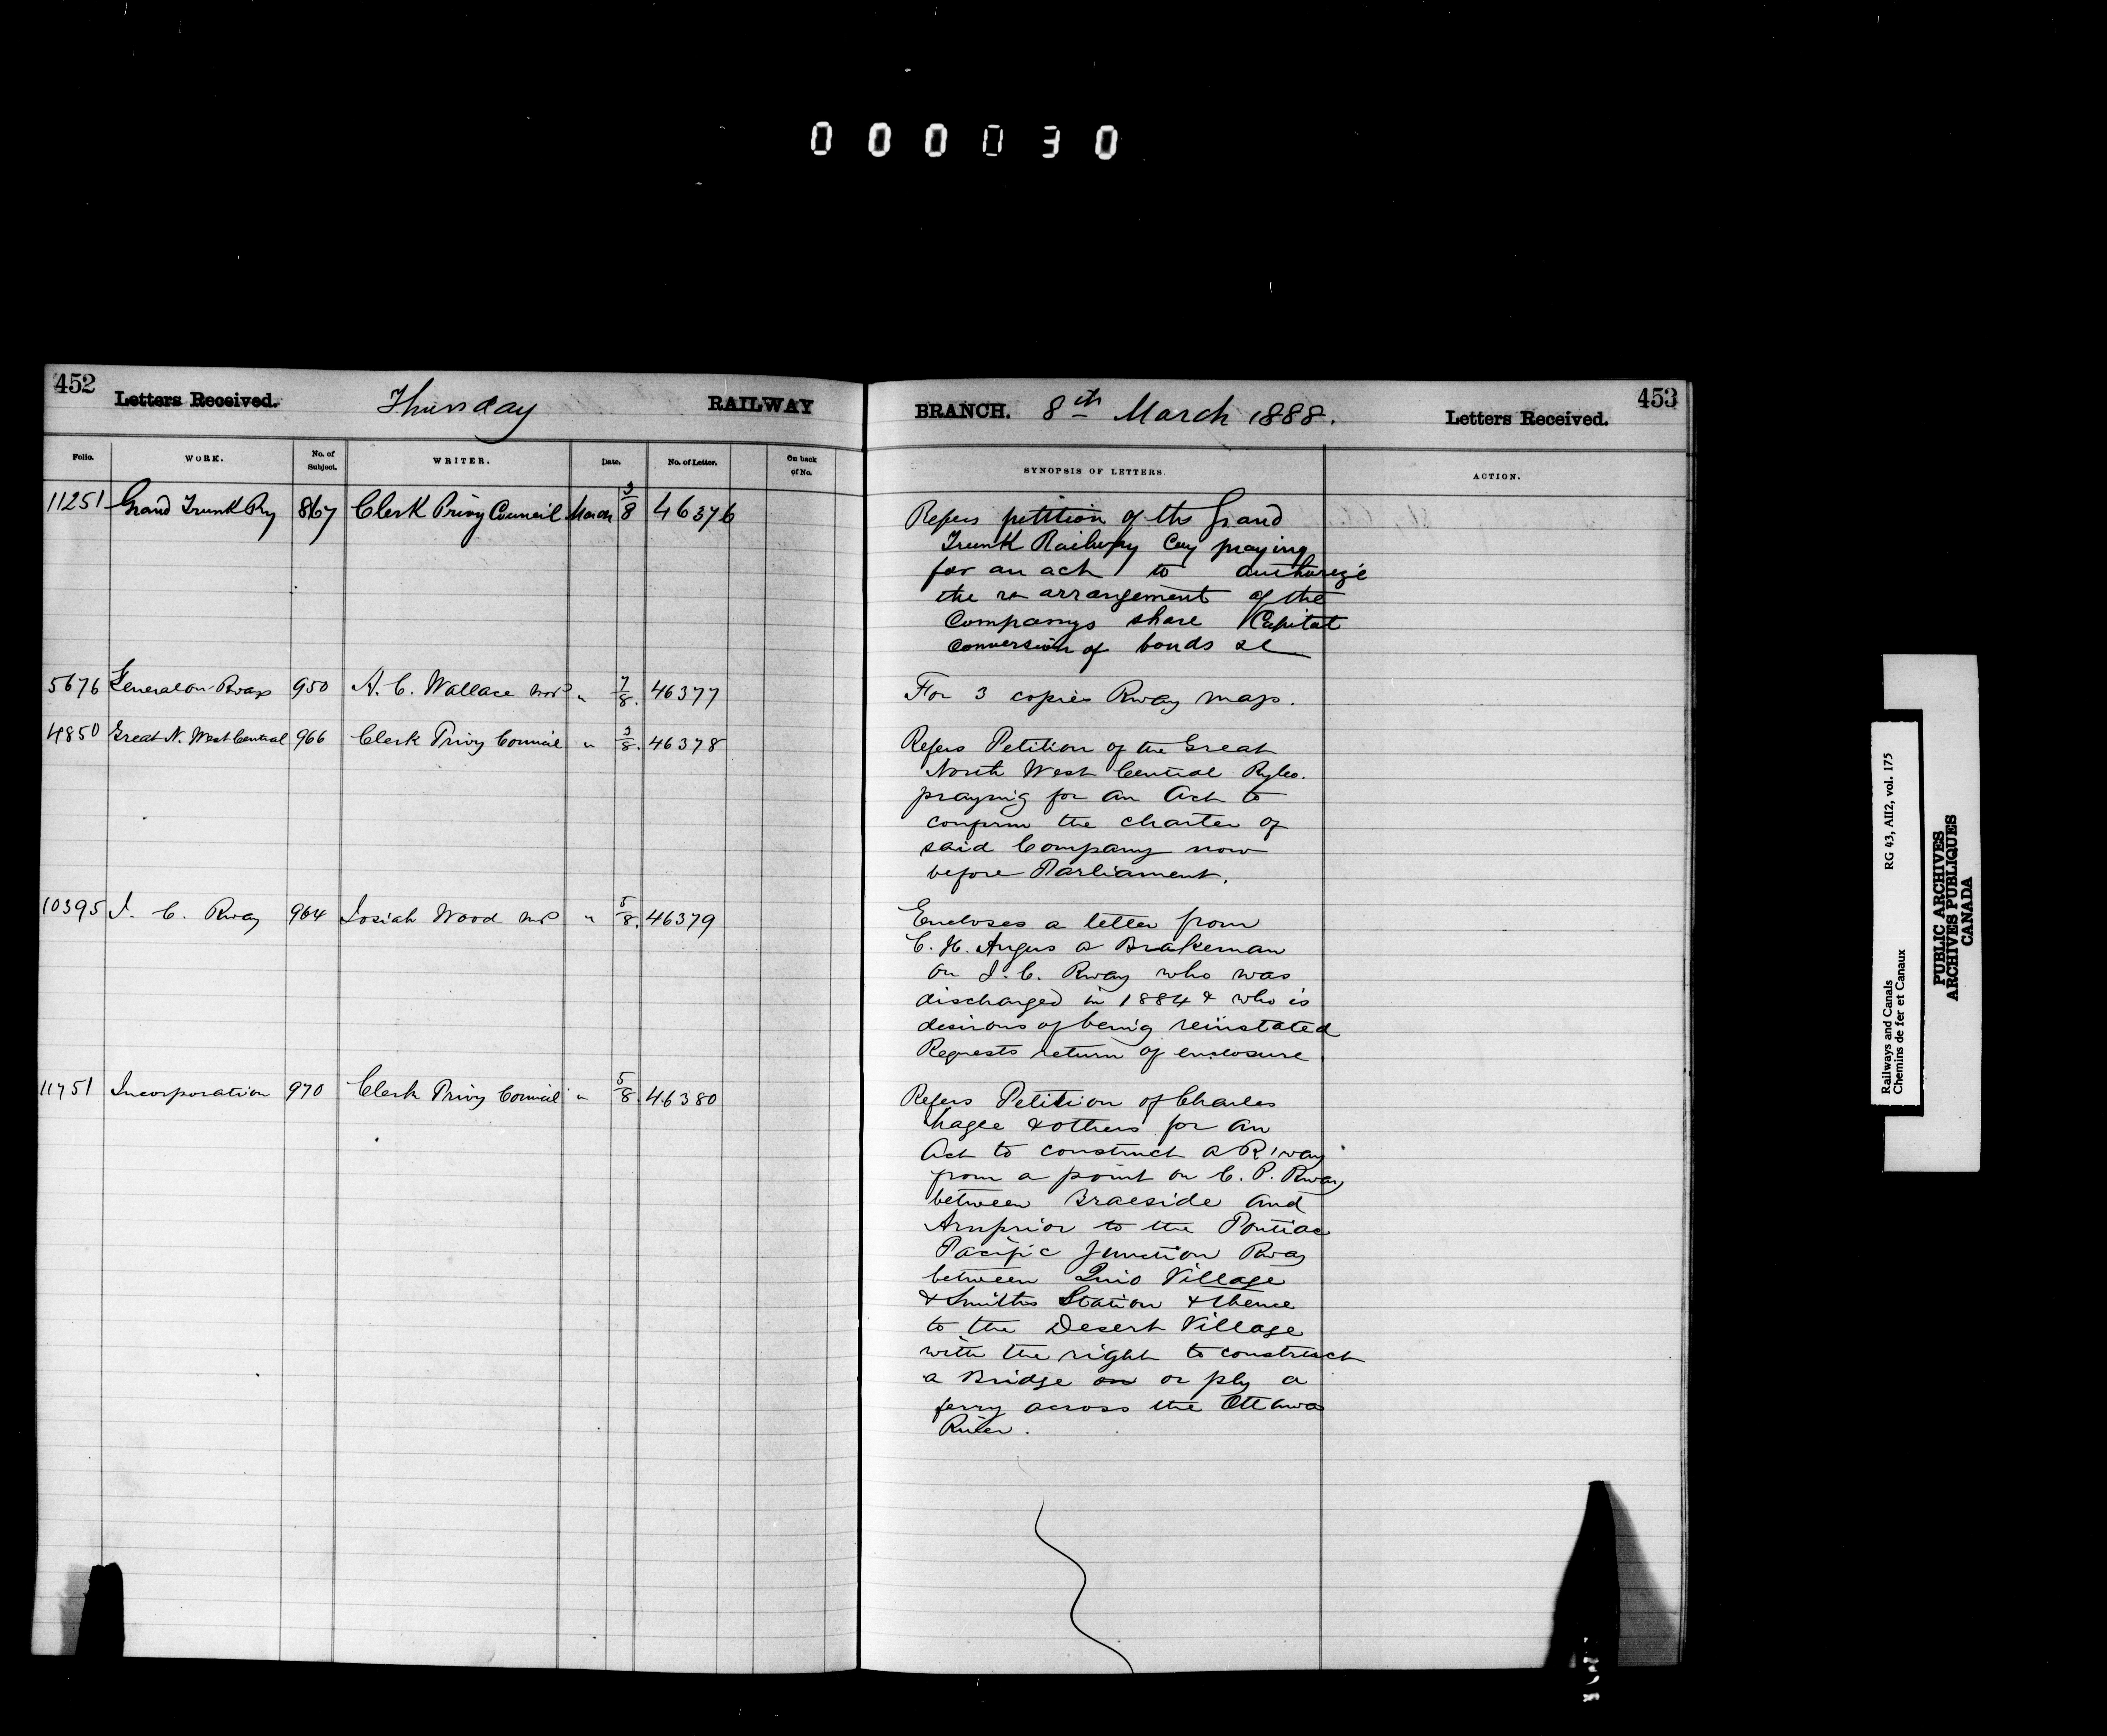 000030
452 Letters Received. Thursday RAILWAY
Folio. WORK. No. of Subject. WRITER. Date. No. of Letter. On back of No.
11251 Grand Trunk Ry 867 Clerk Privy Council March 3/8 46376
5676 General on Rways 950 A. C. Wallace MP " 7/8. 46377
4850 Great N. West Central 966 Clerk Privy Council " 3/8. 46378
10395 I. C. Rway 964 Josiah Wood MP " 5/8. 46379
11751 Incorporation 970 Clerk Privy Council " 5/8. 46380
BRANCH. 8th March 1888. Letters Received. 453
SYNOPSIS OF LETTERS. ACTION.
Refers petition of the Grand
Trunk Railway Coy praying
for an act to authorize
the re arrangement of the
Companys share Capital
Conversion of bonds &c
For 3 copies Rway map.
Refers Petition of the Great
North West Central Ry Co.
praying for an Act to
confirm the charter of
said Company now
before Parliament.
Encloses a letter from
C. H. Angus a Brakeman
on I. C. Rway who was
discharged in 1884 & who is
desirous of being reinstated
Requests return of enclosure
Refers Petition of Charles
Magee & others for an
Act to construct a R'way
from a point on C. P. Rway
between Braeside and
Arnprior to the Pontiac
Pacific Junction Rway
between Quio Village
& Smiths Station & thence
to the Desert Village
with the right to construct
a Bridge on or ply a
ferry across the Ottawa
River.
Railways and Canals RG 43, AII2, vol. 175
Chemins de fer et Canaux
PUBLIC ARCHIVES
ARCHIVES PUBLIQUES
CANADA